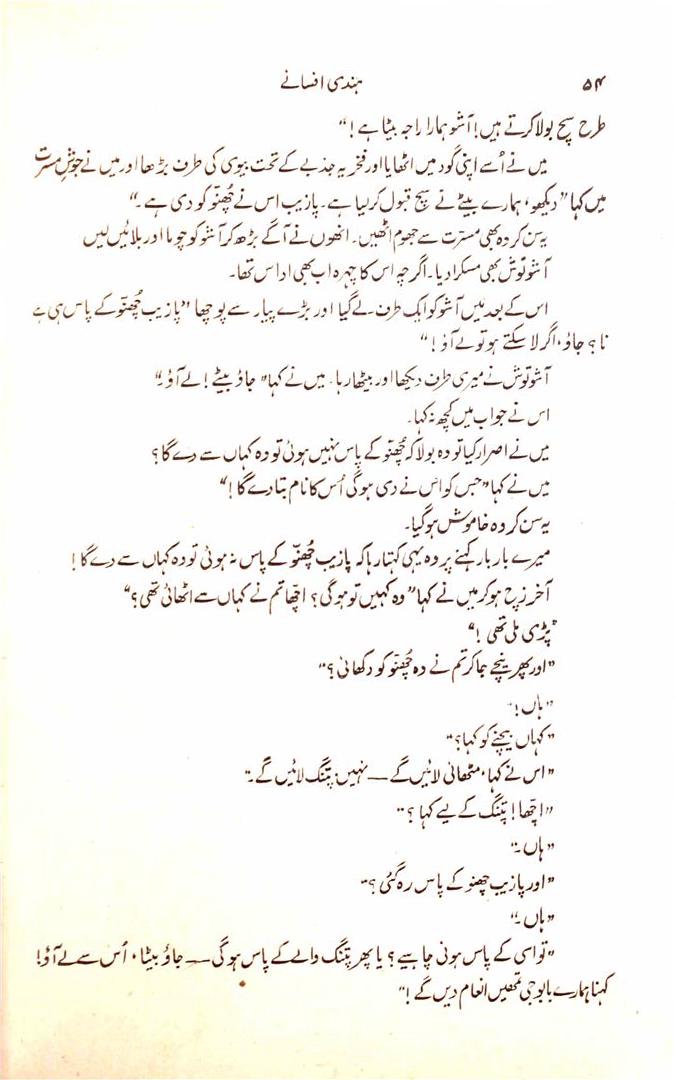 ۵۴ ہندی افسانے
طرح سچ بولا کرتے ہیں! آشو ہمارا راجہ بیٹا ہے!“
میں نے اُسے اپنی گود میں اٹھایا اور فخریہ جذبے کے تحت بیوی کی طرف بڑھا اور میں نے جوشِ مسرت
میں کہا ”دیکھو، ہمارے بیٹے نے سچ قبول کر لیا ہے۔ پازیب اس نے چُھنّو کو دی ہے۔“
یہ سن کر وہ بھی مسرت سے جھوم اٹھیں۔ انھوں نے آگے بڑھ کر آشو کو چوما اور بلائیں لیں
آشوتوش بھی مسکرا دیا۔ اگرچہ اس کا چہرہ اب بھی اداس تھا۔
اس کے بعد میں آشو کو ایک طرف لے گیا اور بڑے پیار سے پوچھا ”پازیب چُھنّو کے پاس ہی ہے
نا؟ جاؤ، اگر لا سکتے ہو تو لے آؤ!“
آشوتوش نے میری طرف دیکھا اور بیٹھا رہا۔ میں نے کہا ”جاؤ بیٹے! لے آؤ۔“
اس نے جواب میں کچھ نہ کہا۔
میں نے اصرار کیا تو وہ بولا کہ چُھنّو کے پاس نہیں ہوئی تو وہ کہاں سے دے گا؟
میں نے کہا ”جس کو اس نے دی ہوگی اُس کا نام بتا دے گا!“
یہ سن کر وہ خاموش ہو گیا۔
میرے بار بار کہنے پر وہ یہی کہتا رہا کہ پازیب چُھنّو کے پاس نہ ہوئی تو وہ کہاں سے دے گا!
آخر زچ ہو کر میں نے کہا ”وہ کہیں تو ہوگی؟ اچھا تم نے کہاں سے اٹھائی تھی؟“
”پڑی ملی تھی!“
”اور پھر نیچے جا کر تم نے وہ چُھنّو کو دکھائی؟“
”ہاں!“
”کہاں بیچنے کو کہا؟“
”اس نے کہا، مٹھائی لائیں گے — نہیں، پتنگ لائیں گے۔“
”اچھا! پتنگ کے لیے کہا؟“
”ہاں۔“
”اور پازیب چھنو کے پاس رہ گئی؟“
”ہاں۔“
”تو اسی کے پاس ہونی چاہیے؟ یا پھر پتنگ والے کے پاس ہوگی — جاؤ بیٹا، اُس سے لے آؤ!
کہنا ہمارے بابوجی تمھیں انعام دیں گے!“